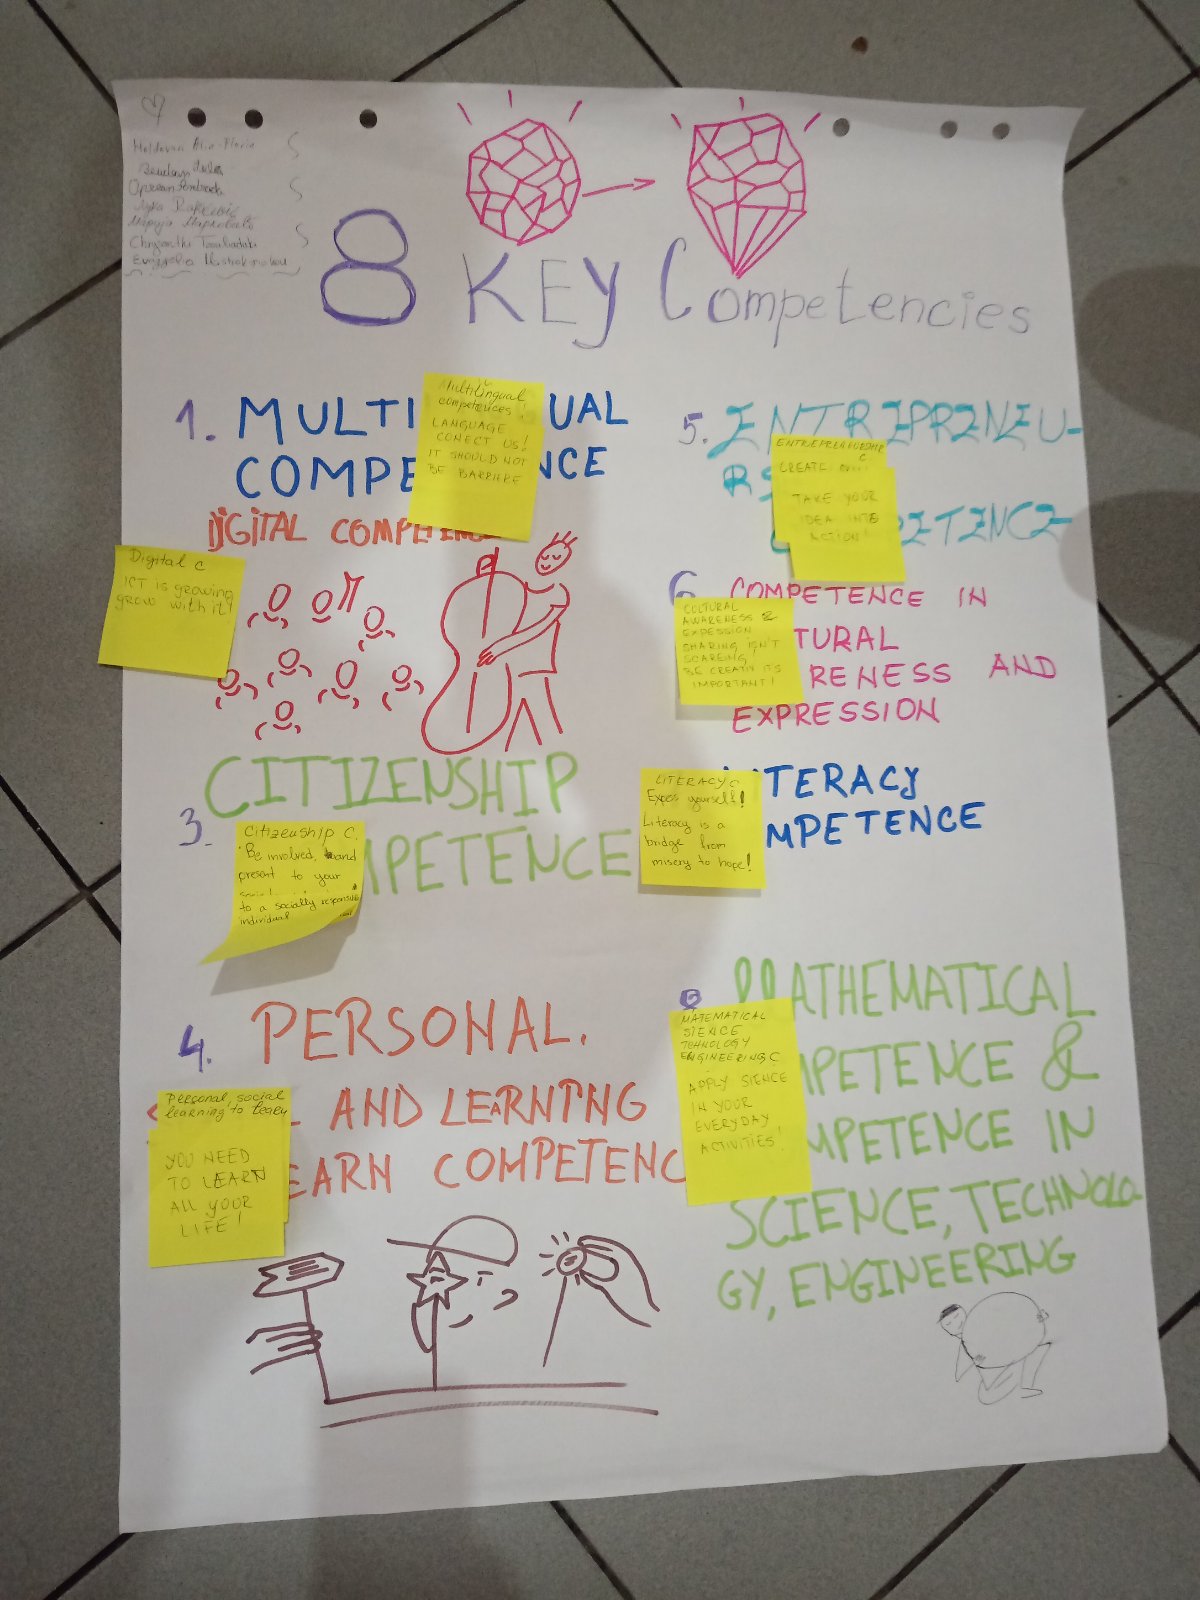 8 KEY Competencies
1. MULTI UAL
COMPE NCE
Multilingual
competences
LANGUAGE
CONECT US!
IT SHOULD NOT
BE BARRIERE
DIGITAL COMPETENCE
Digital C
ICT is growing
grow with it!
CITIZENSHIP
3. MPETENCE
Citizenship C.
Be involved, and
present to your
to a socially responsible
individual
4. PERSONAL.
L AND LEARNING
EARN COMPETENC
Personal, social
learning to learn
YOU NEED
TO LEARN
ALL YOUR
LIFE!
5. ENTREPRENEU-
RS
PETENCE
ENTREPRENEUSHIP
C
CREATE
TAKE YOUR
IDEA INTO
ACTION!
6 COMPETENCE IN
TURAL
RENESS AND
EXPRESSION
CULTURAL
AWARENESS &
EXPESSION
SHARING ISN'T
SCAREING!
BE CREATIV IT'S
IMPORTANT!
ITERACY
MPETENCE
LITERACY C
Expess yourself!
Literacy is a
bridge from
misery to hope!
8 MATHEMATICAL
MPETENCE &
MPETENCE IN
SCIENCE, TECHNOLO
GY, ENGINEERING
MATEMATICAL
SIENCE
TEHNOLOGY
ENGINEERING C
APPLY SIENCE
IN YOUR
EVERYDAY
ACTIVITIES!